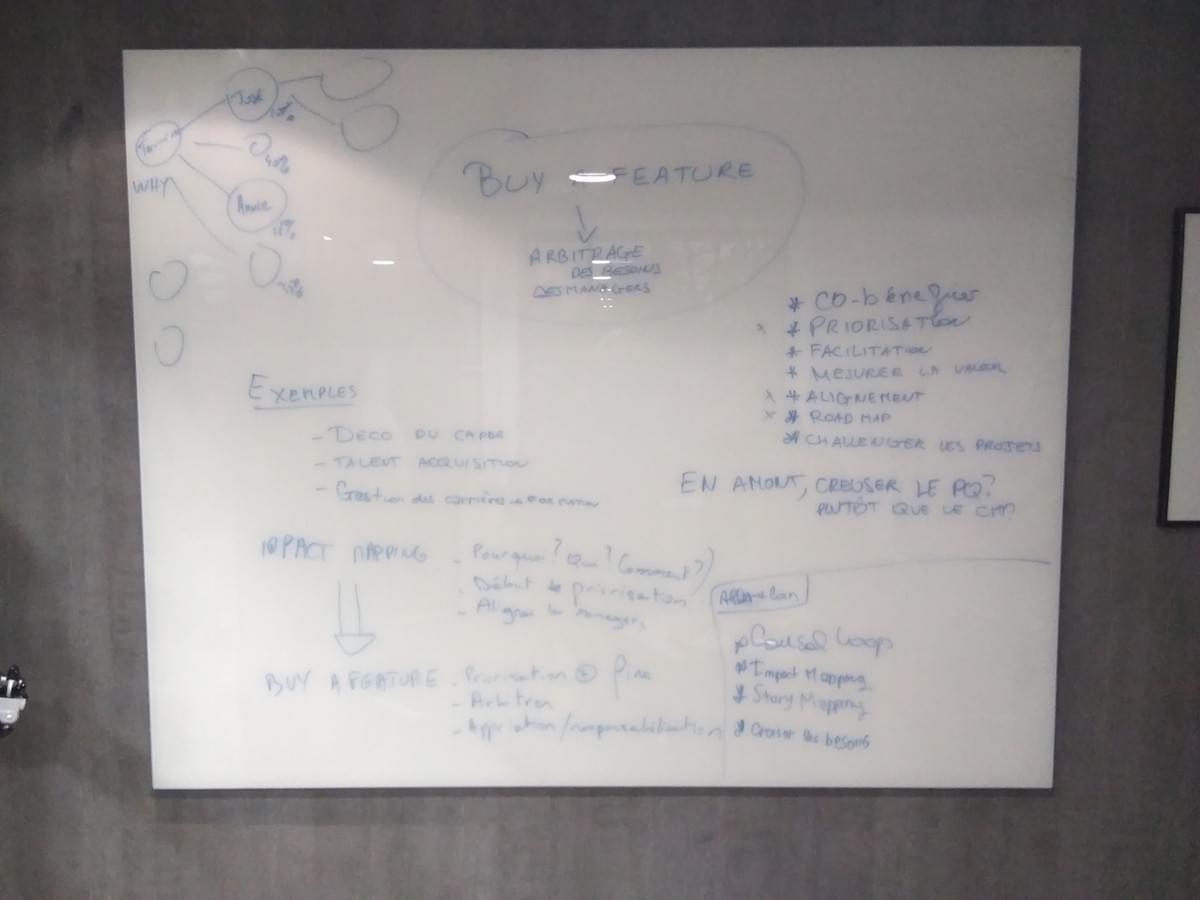 WHY
BUY A FEATURE
ARBITRAGE
DES BESOINS
DES MANAGERS
* CO-bénéfices
x * PRIORISATION
* FACILITATION
* MESURER LA VALEUR
x * ALIGNEMENT
x * ROAD MAP
* CHALLENGER LES PROJETS
EN AMONT, CREUSER LE PQ?
PLUTÔT QUE LE CMT?
EXEMPLES
- DECO DU
- TALENT ACQUISITION
- Gestion des carrières
IMPACT MAPPING
- Pourquoi? Qui? (Comment?)
- Début de priorisation
- Aligner les managers
BUY A FEATURE
- Priorisation + fine
- Arbitrer
* Causal Loop
* Impact Mapping
* Story Mapping
* les besoins